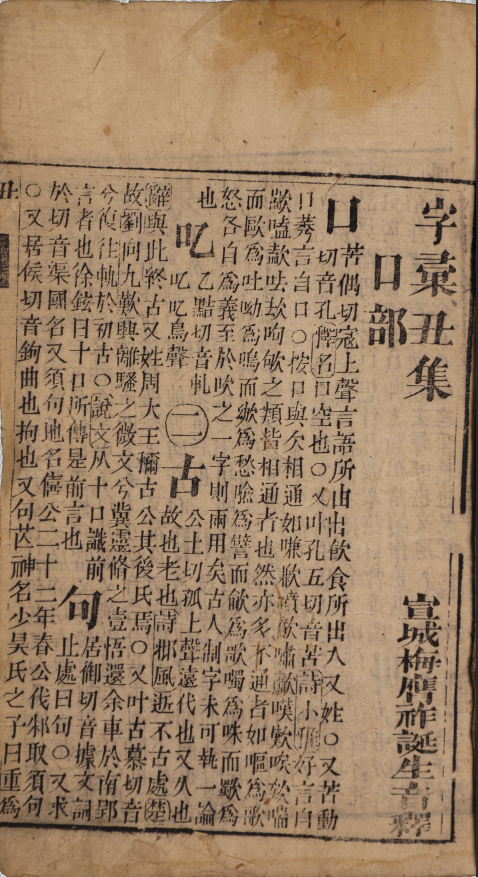 字彙丑集
宣城梅膺祚誕生音釋
口部
口 苦偶切寇上聲言語所由出飲食所出入又姓○又苦動
切音孔釋名口空也○又叶孔五切音苦詩小雅好言自
口莠言自口○按口與欠相通如嗛歉噴歕嘯歗嘆歎唉欸喘
歂嗑呿呴欨之類皆相通者也然亦多不通者如嘔為歌
而歐為吐呦為鳴而為愁噞為譬而為歌噣為咮而歜為
怒各自為義至於吹之一字則兩用矣古人制字未可執一論
也 𠮙 乙點切音軋 二 古 公土切孤上聲遠代也又久也
𠮙𠮙鳥聲 故也老也詩邶風逝不古處楚
辭與此終古又姓周大王稱古公其後氏焉○又叶古慕切音
故劉向九歎興離騷之微文兮冀靈脩之壹悟還余車於南郢
兮復往軌於初古○說文从十口識前 句 居御切音據文詞
言者也徐鉉曰十口所傳是前言也 止處曰句○又求
於切音渠國名又須句地名僖公二十二年春公伐邾取須句
○又居侯切音鉤曲也拘也又句芒神名少昊氏之子曰重為
丑